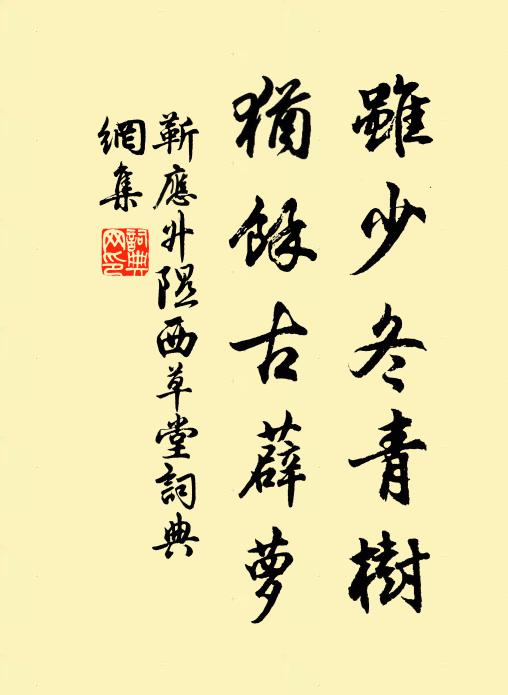 雖少冬青樹
猶餘古薜萝
靳應升隰西草堂詞典
網集
詞典網印